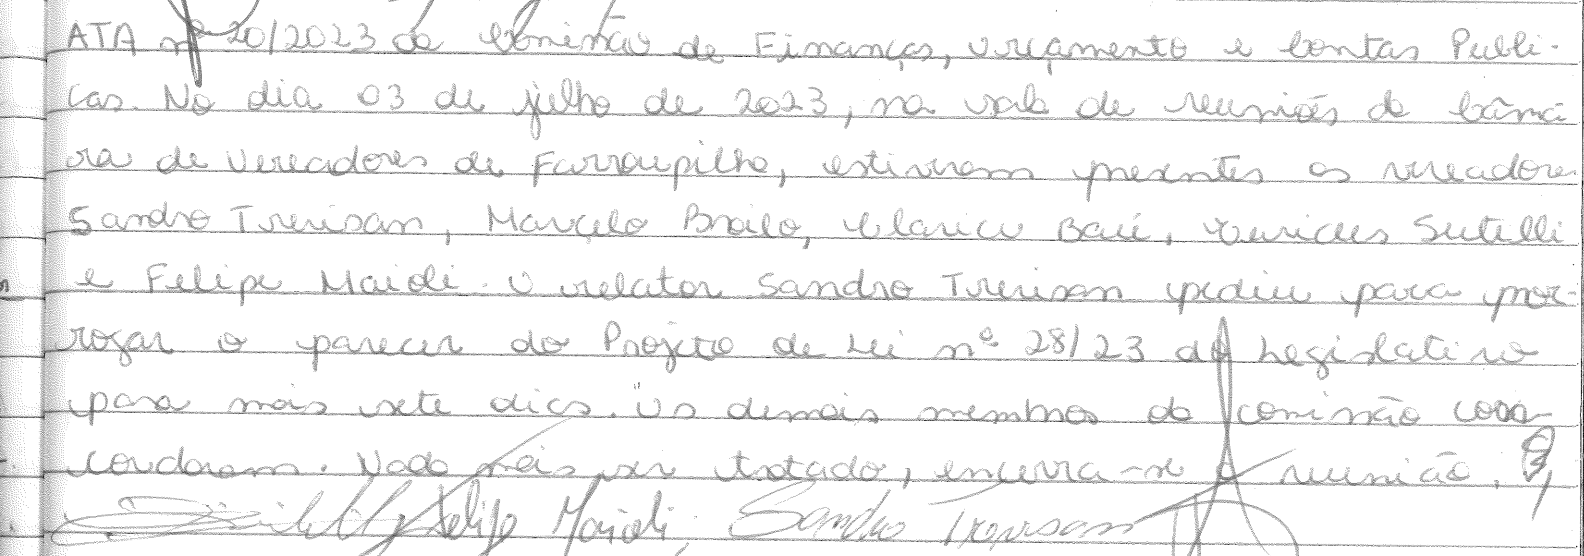 ATA nº 20/2023 da Comissão de Finanças, Orçamento e Contas Públi-
cas. No dia 03 de julho de 2023, na sala de reuniões da Câma
ra de Vereadores de Farroupilha, estiveram presentes os vereadores
Sandro Trevisan, Marcelo Broilo, Clarice Baú, Eurides Sutilli
e Felipe Maioli. O relator Sandro Trevisan pediu para pror-
rogar o parecer do Projeto de Lei nº 28/23 do Legislativo
para mais sete dias. Os demais membros da comissão con
cordaram. Nada mais ser tratado, encerra-se a reunião.
Felipe Maioli, Sandro Trevisan